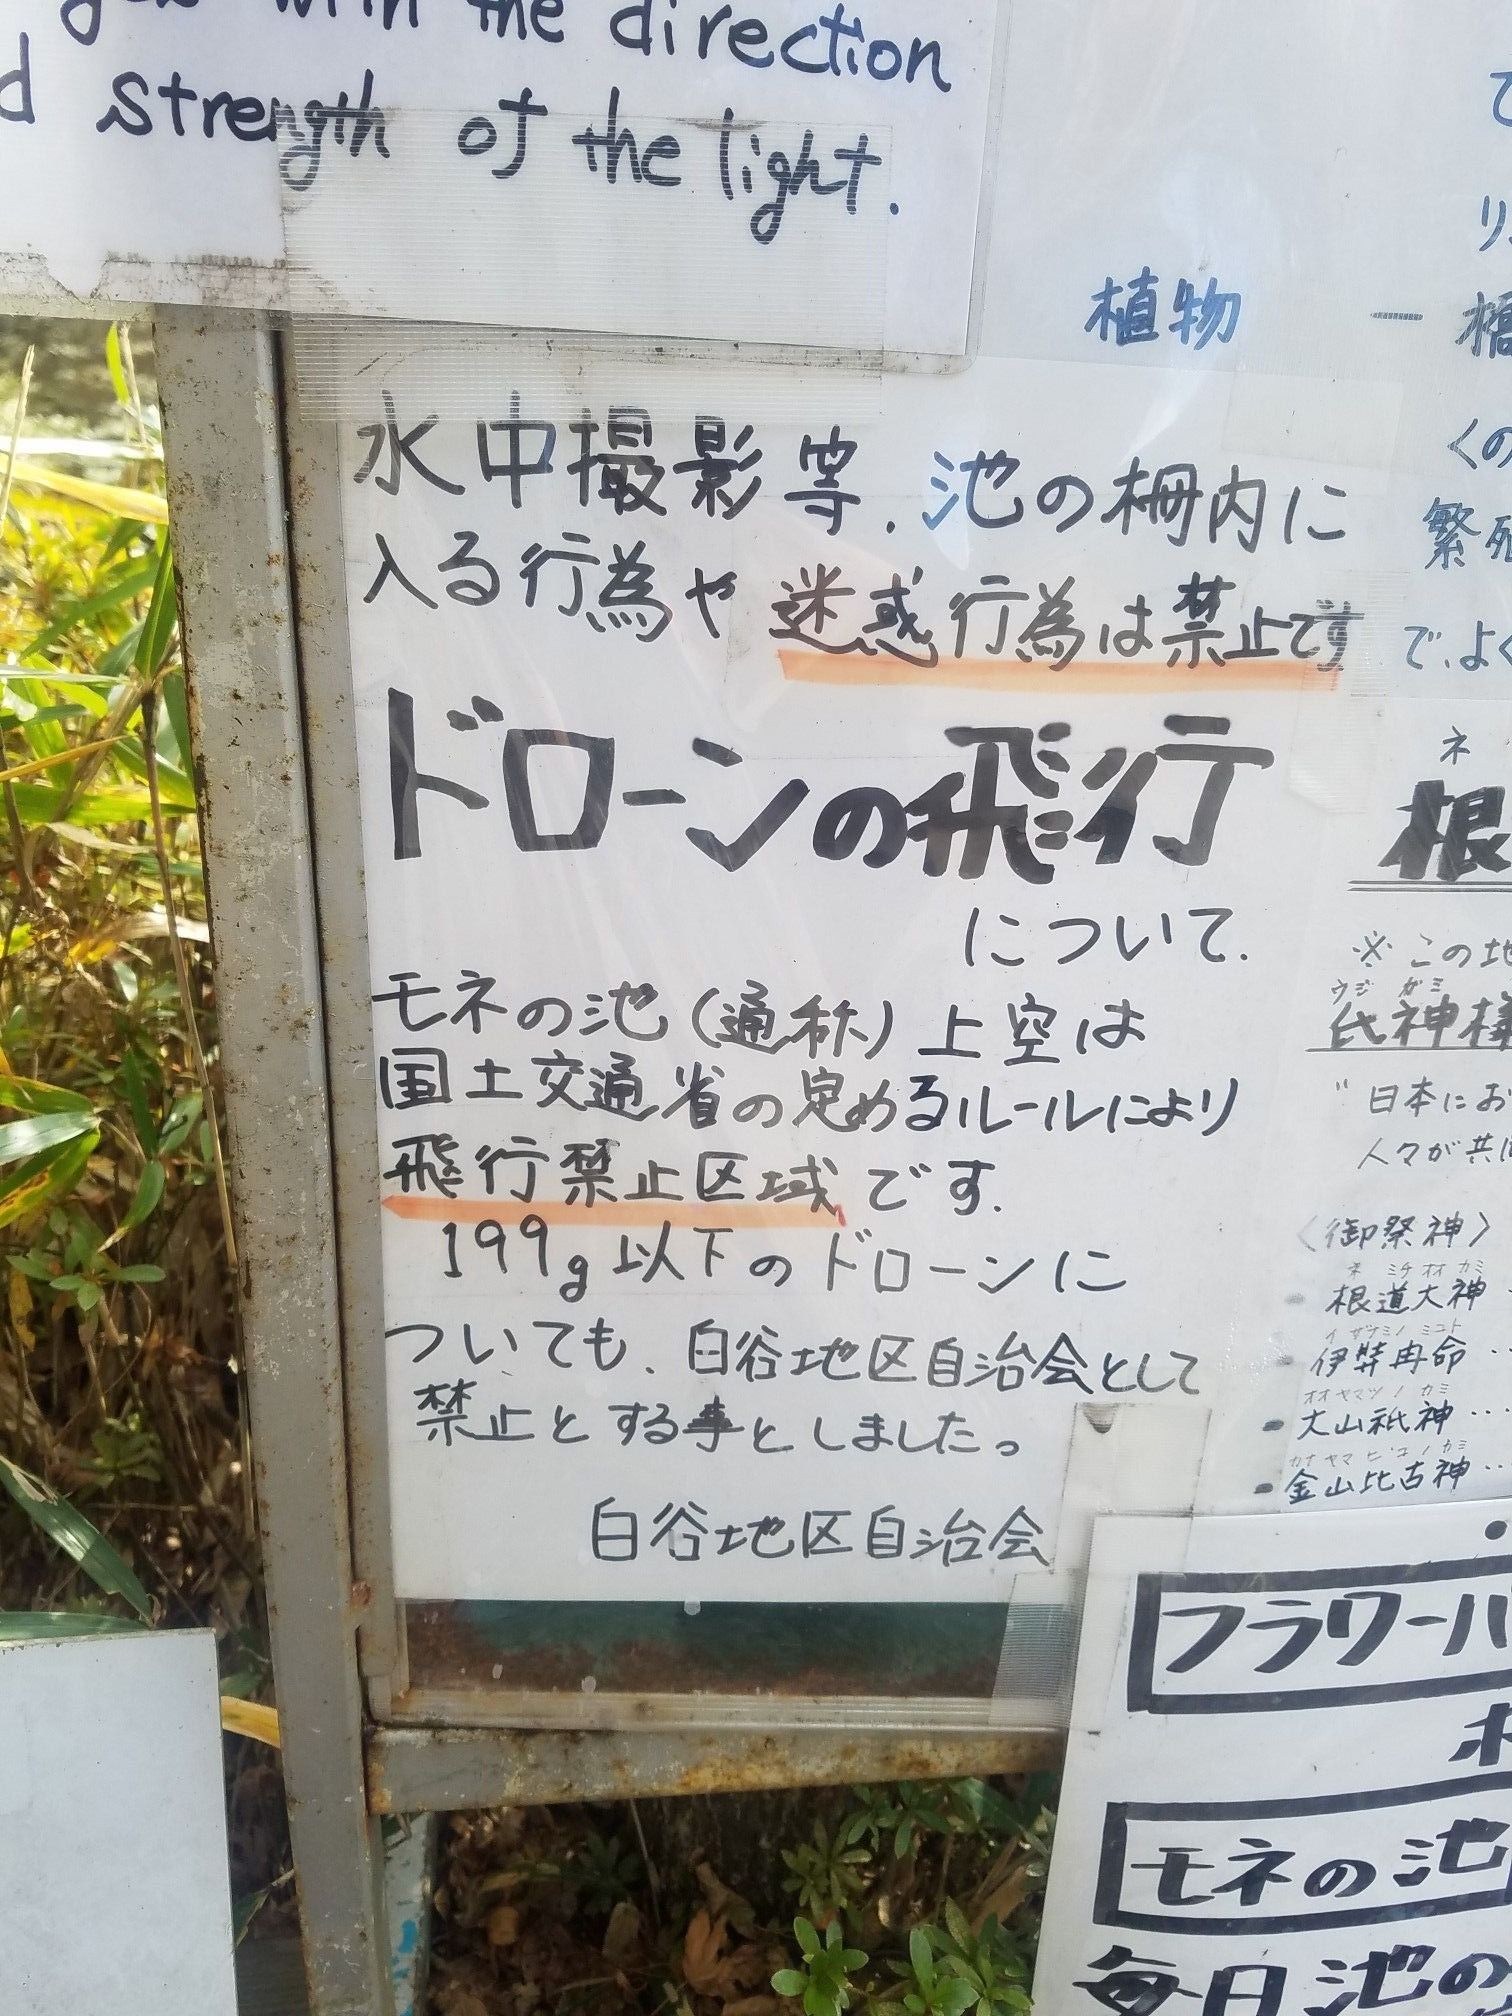 with the direction
strength of the light.
植物
水中撮影等、池の柵内に
入る行為や迷惑行為は禁止です
ドローンの飛行
について.
モネの池(通称)上空は
国土交通省の定めるルールにより
飛行禁止区域です.
199g以下のドローンに
ついても、白谷地区自治会として
禁止とする事としました。
白谷地区自治会
で、よく
ネ
根
※この地
ウジ ガミ
氏神様
"日本にお
人々が共
〈御祭神〉
ネ ミチ オオ カミ
根道大神
イ ザナミノ ミコト
伊弉冉命
オオヤマツノカミ
大山祇神
カナヤマヒコノカミ
金山比古神
フラワー
モネの池
毎日池の